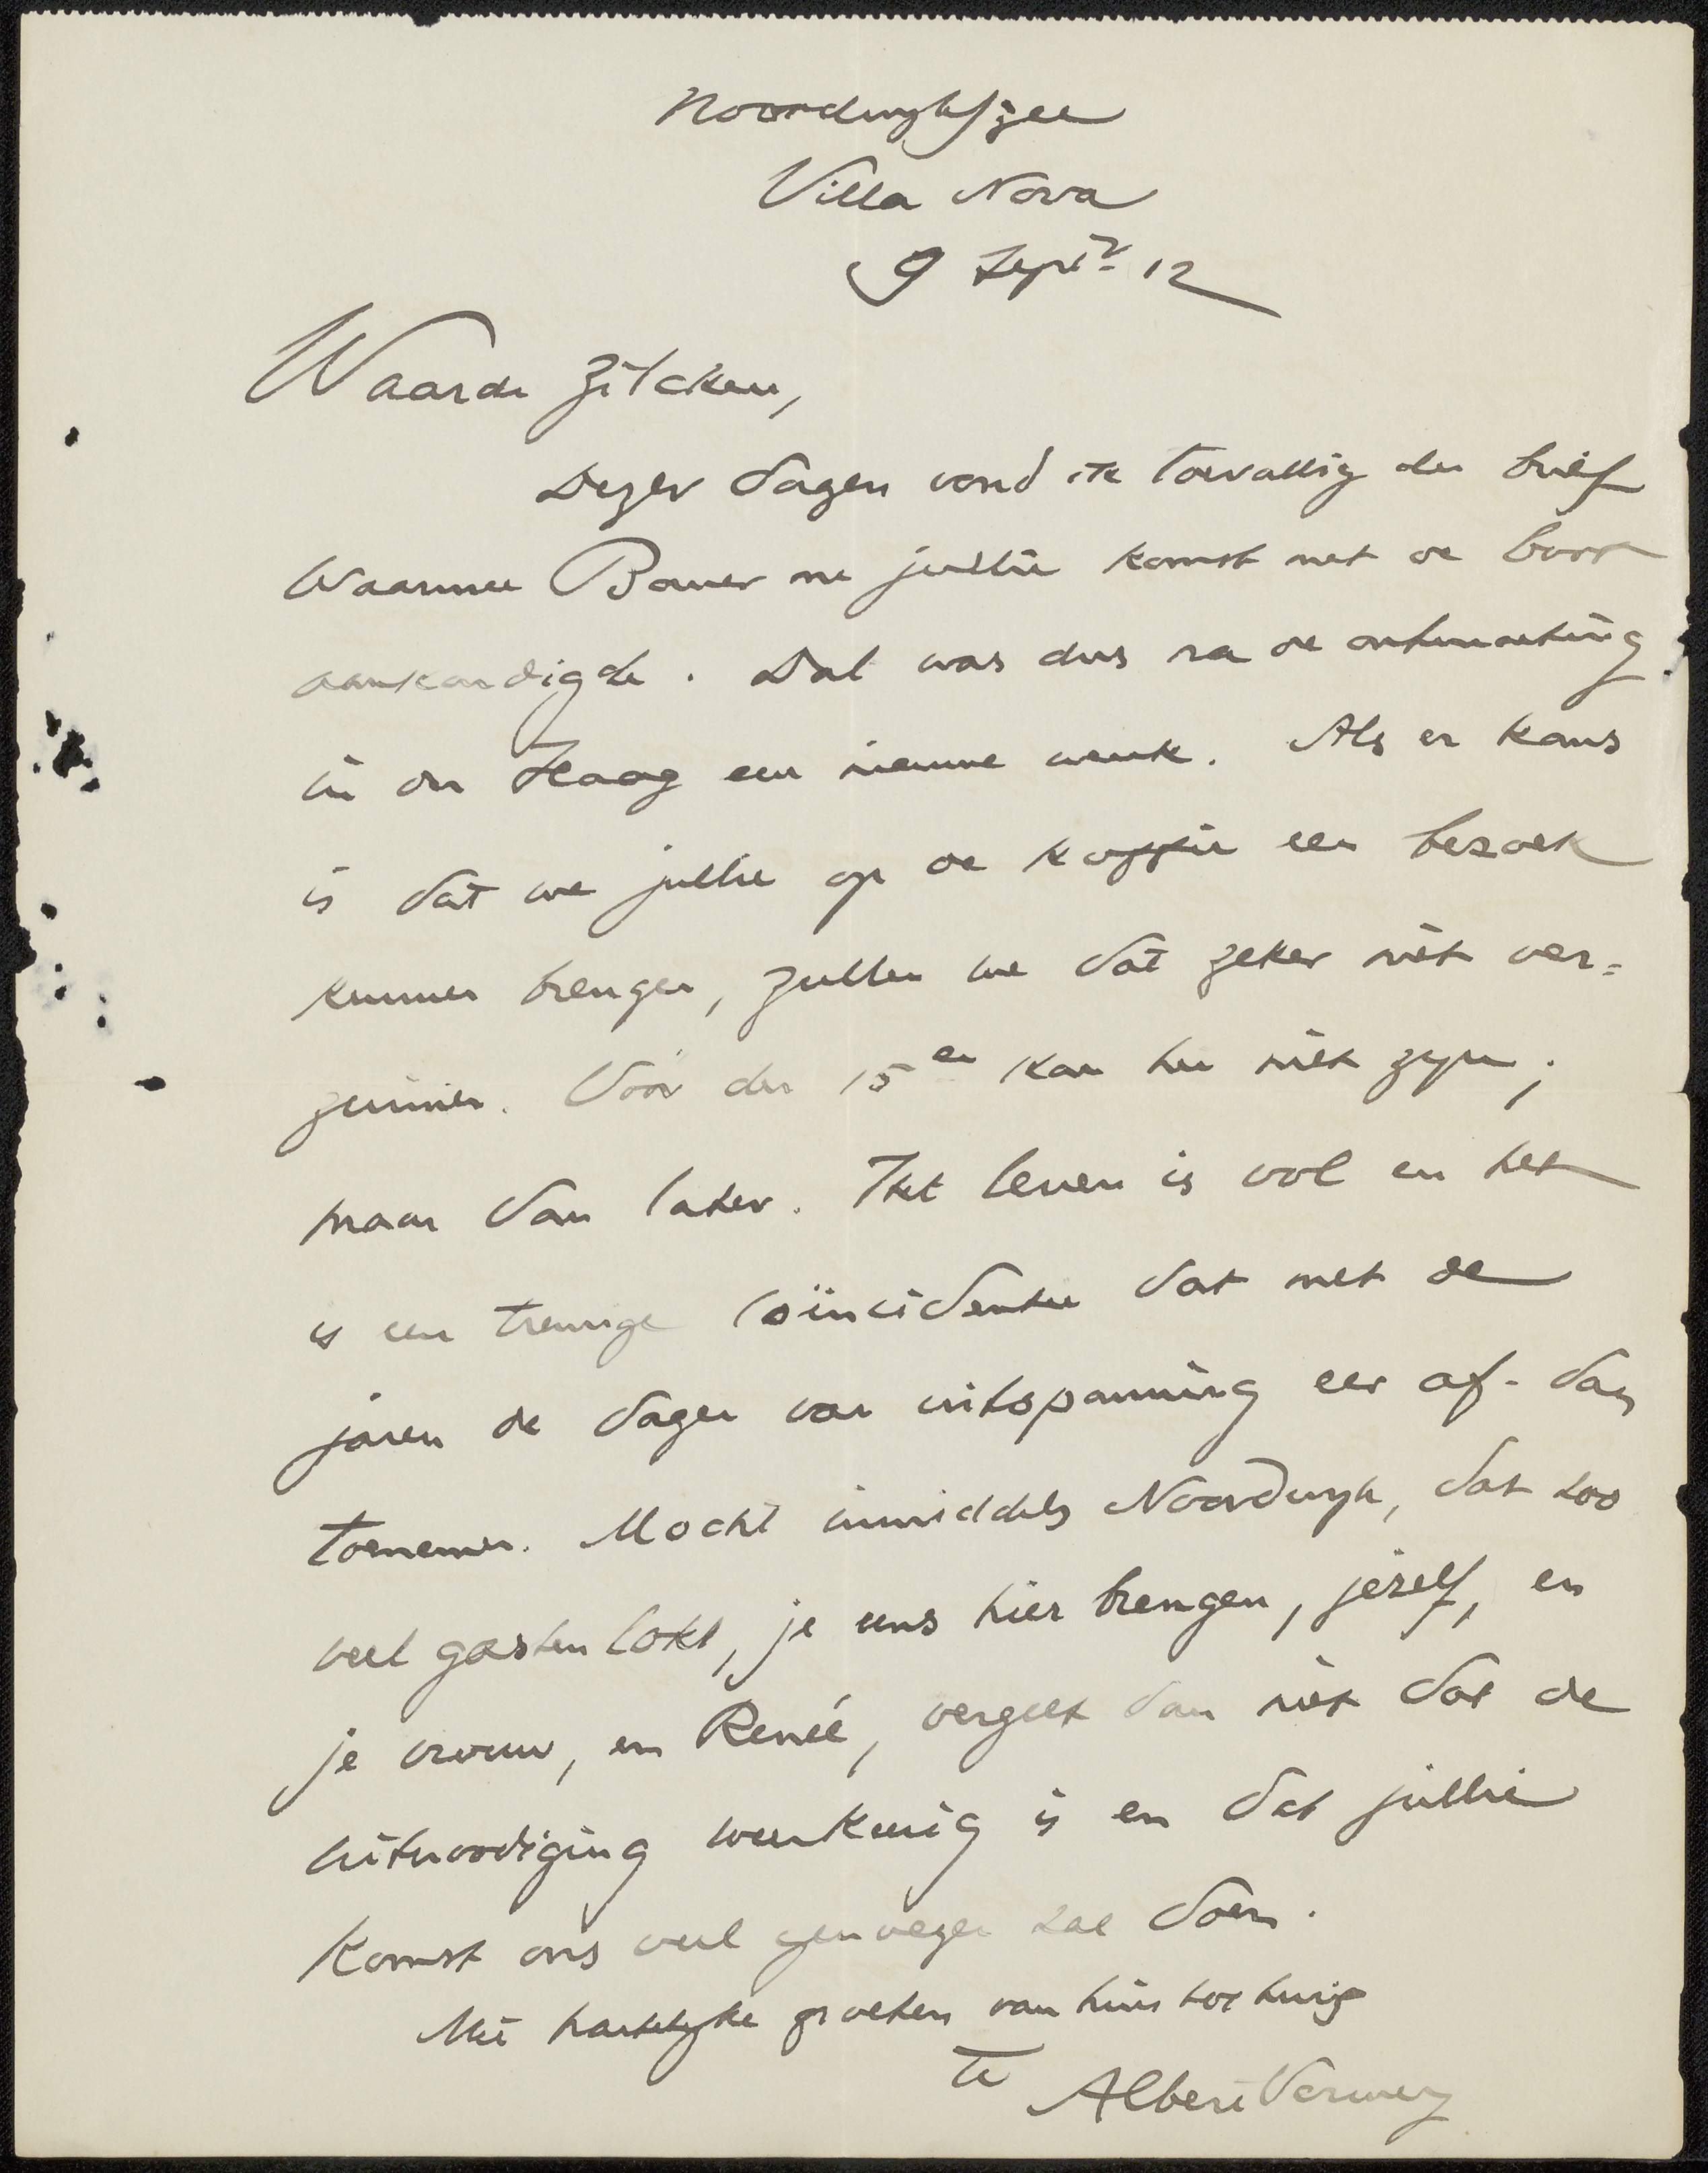 Noordwyk a/zee
Villa Nova
9 Septr. 12
Waarde Zilcken,
Dezer dagen vond ik toevallig den brief
waarmee Bauer me jullie komst met de boot
aankondigde. Dat was dus na de ontmoeting
in den Haag een nieuwe wenk. Als er kans
is dat we jullie op de koffie een bezoek
kunnen brengen, zullen we dat zeker niet ver=
zuimen. Vóór den 15en kan het niet zyn;
maar dan later. Het leven is vol en het
is een treurige coïncidentie dat met de
jaren de dagen van uitspanning eer af- dan
toenemen. Mocht inmiddels Noordwyk, dat zoo
veel gasten lokt, je eens hier brengen, jezelf, en
je vrouw, en Renée, vergeet dan niet dat de
uitnoodiging weerkeerig is en dat jullie
komst ons veel genoegen zal doen.
Met hartelyke groeten van huis tot huis
Albert Verwey